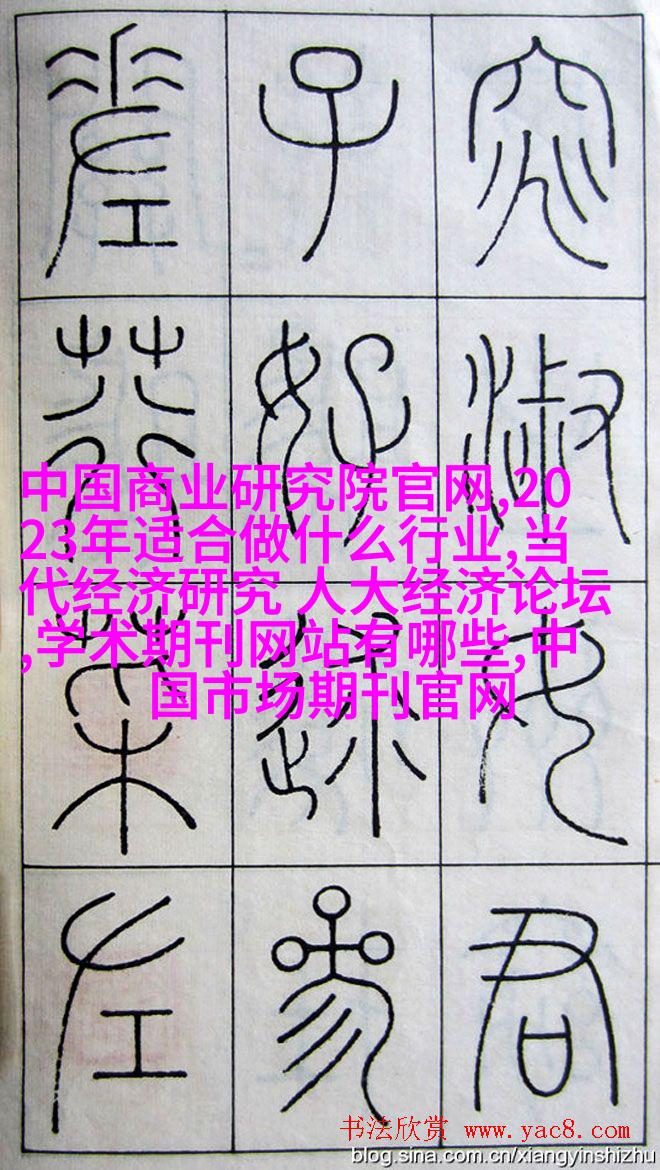 窕淑女君
子好逑參
差荇菜左
中国商业研究院官网,20
23年适合做什么行业,当
代经济研究 人大经济论坛
,学术期刊网站有哪些,中
国市场期刊官网
书法欣赏 www.yac8.com
blog.sina.com.cn/xiangyinshizhu